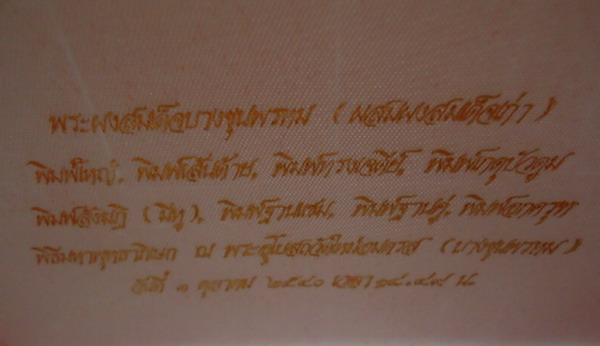 พระผงสมเด็จบางขุนพรหม ( ผสมผงสมเด็จเก่า )
พิมพ์ใหญ่, พิมพ์เส้นด้าย, พิมพ์ทรงเจดีย์, พิมพ์เกศบัวตูม
พิมพ์สังฆฏิ ( มีหู ), พิมพ์ฐานแซม, พิมพ์ฐานคู่, พิมพ์อกครุฑ
พิธีมหาพุทธาภิเษก ณ พระอุโบสถวัดใหม่อมตรส ( บางขุนพรหม )
วันที่ ๑ ตุลาคม ๒๕๔๐ เวลา ๑๕.๔๙ น.